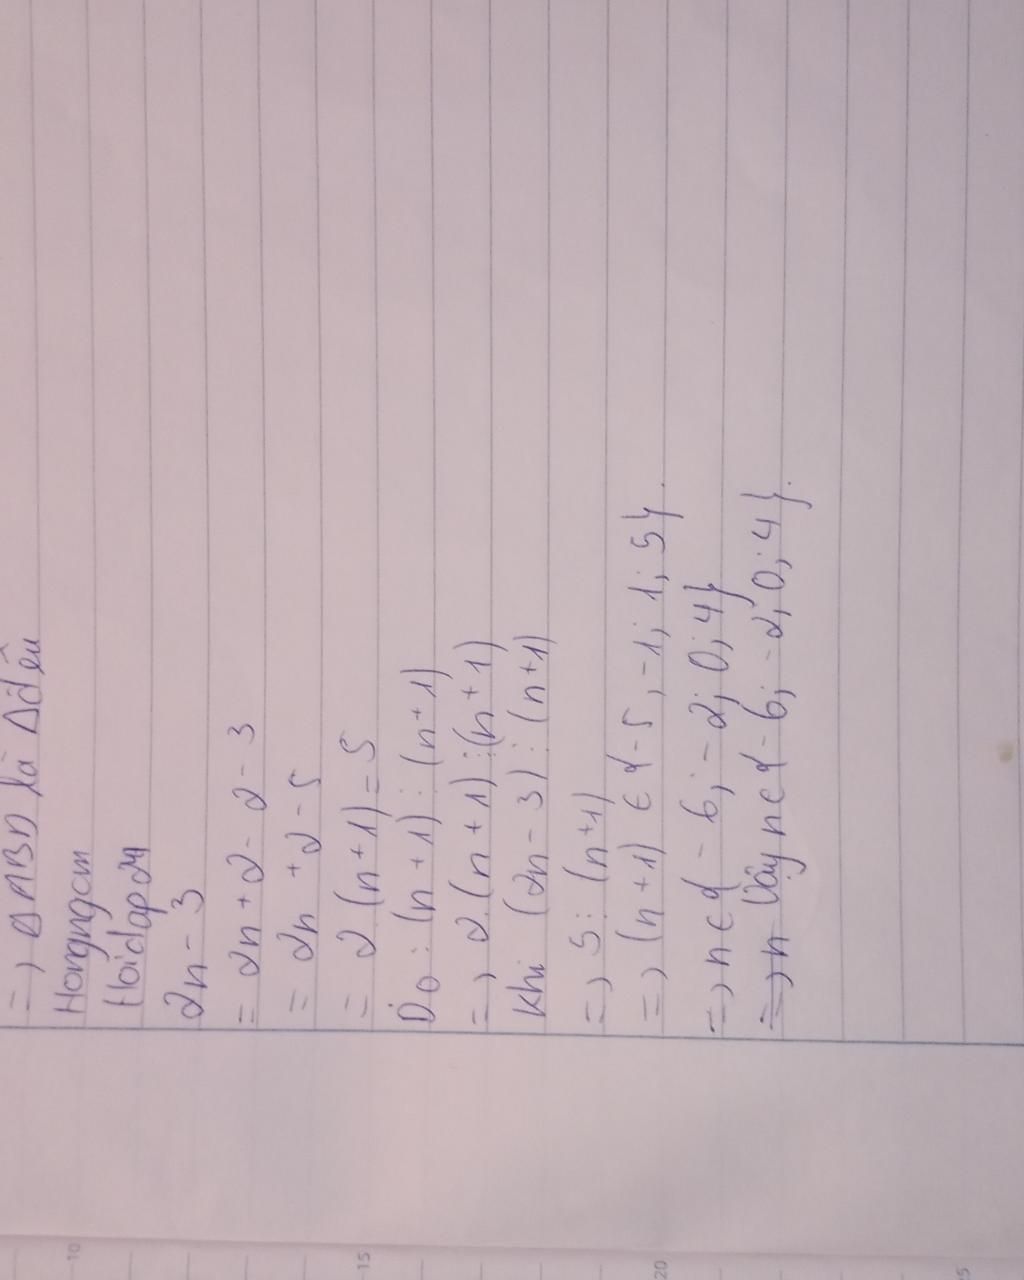 => Δ ABD là Δ đều
Hongngcm
Hoidap24
2n - 3
= 2n + 2 - 2 - 3
= 2n + 2 - 5
= 2 (n + 1) = 5
Do : (n + 1) ⋮ (n + 1)
=> 2. (n + 1) ⋮ (n + 1)
Khi (2n - 3) ⋮ (n + 1)
=> 5 ⋮ (n + 1)
=> (n + 1) ∈ { - 5, - 1; 1; 5}.
=> n ∈ { - 6; - 2; 0; 4}
=> n Vậy n ∈ { - 6; - 2; 0; 4}.
10
15
20